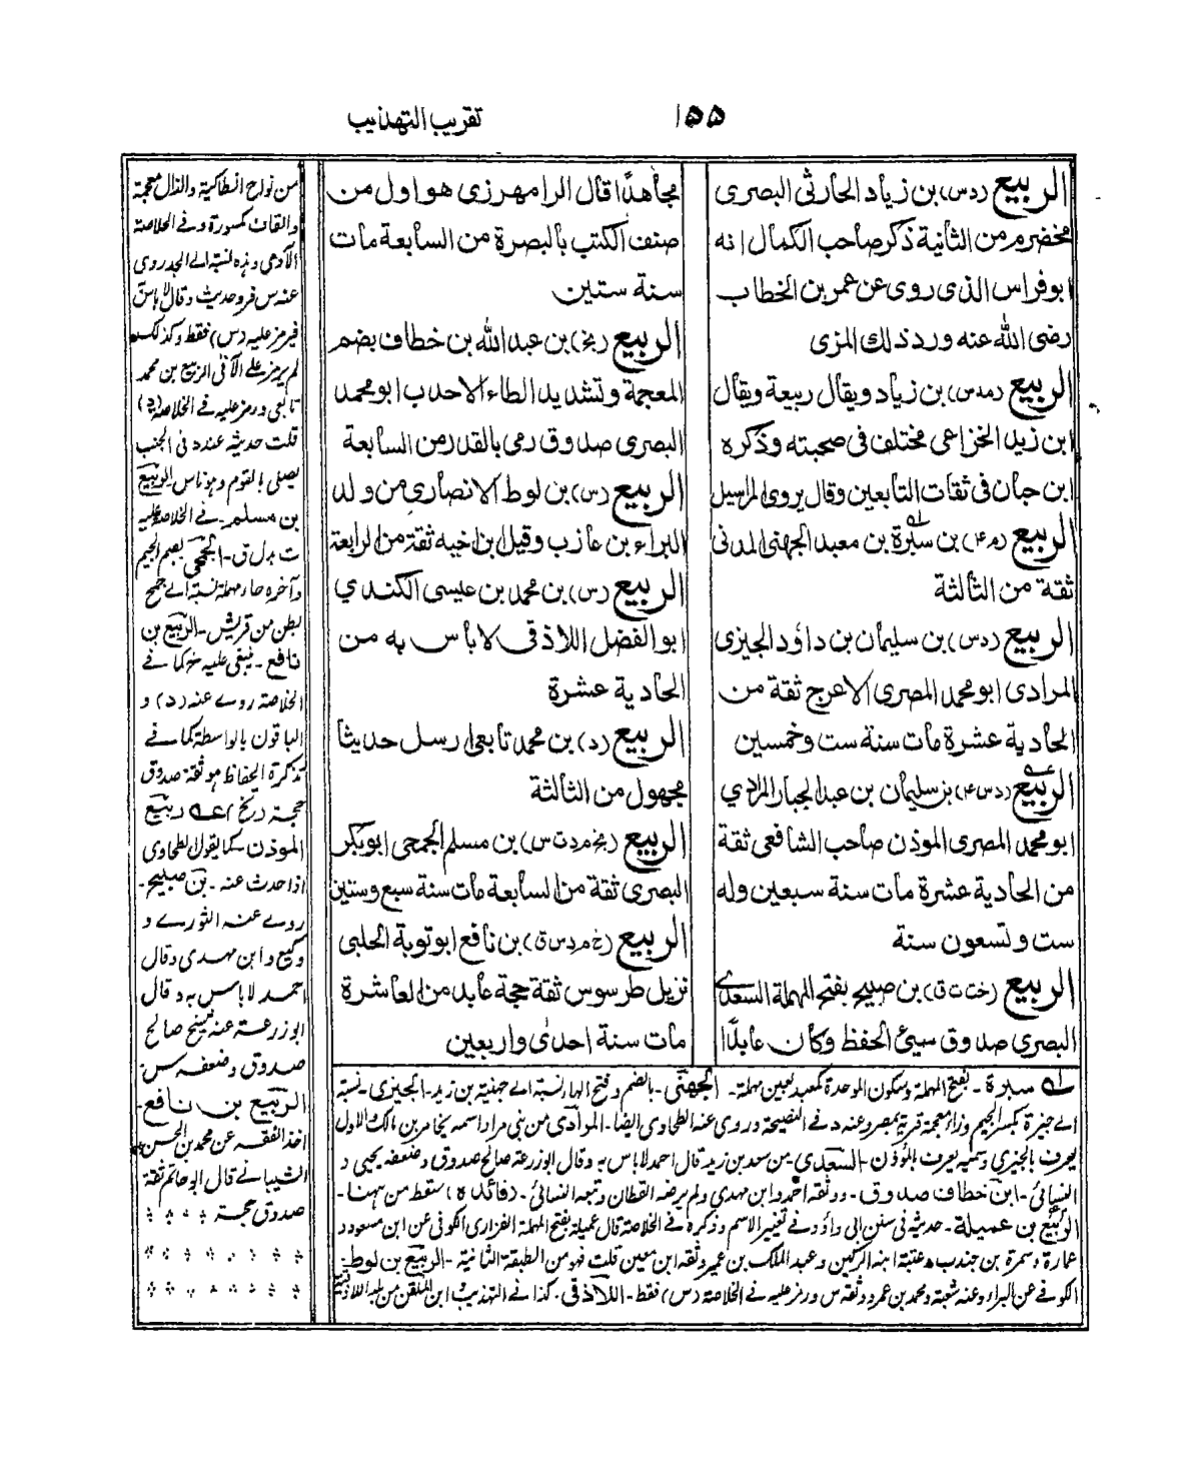 تقريب التهذيب
١٥٥
الربيع (دس) بن زياد الحارثي البصرى
مخضرم من الثانية ذكر صاحب الكمال انه
ابو فراس الذى روى عن عمر بن الخطاب
رضى الله عنه ورد ذلك المزى
الربيع (مدس) بن زياد ويقال ربيعة ويقال
ابن زيد الخزاعى مختلف فى صحبته وذكره
ابن حبان فى ثقات التابعين وقال يروى المراسيل
الربيع (م۴) بن سبرة بن معبد الجهنى المدنى
ثقة من الثالثة
الربيع (دس) بن سليمان بن داؤد الجيزى
المرادى ابو محمد المصرى الاعرج ثقة من
الحادية عشرة مات سنة ست وخمسين
الربيع (دس۴) بن سليمان بن عبد الجبار المرادي
ابو محمد المصرى الموذن صاحب الشافعى ثقة
من الحادية عشرة مات سنة سبعين وله
ست وتسعون سنة
الربيع (خت ت ق) بن صبيح بفتح المهملة السعدے
البصرى صدوق سيئ الحفظ وكان عابدًا
مجاهدًا قال الرامهرزى هو اول من
صنف الكتب بالبصرة من السابعة مات
سنة ستين
الربيع (بخ) بن عبد الله بن خطاف بضم
المعجمة وتشديد الطاء الاحدب ابو محمد
البصرى صدوق رمى بالقدر من السابعة
الربيع (س) بن لوط الانصارى من ولد
البراء بن عازب وقيل ابن اخيه ثقة من الرابعة
الربيع (س) بن محمد بن عيسى الكندي
ابو الفضل اللاذقى لا بأس به من
الحادية عشرة
الربيع (د) بن محمد تابعى ارسل حديثا
مجهول من الثالثة
الربيع (بخ م د ت س) بن مسلم الجمحى ابو بكر
البصرى ثقة من السابعة مات سنة سبع وستين
الربيع (خ م د س ق) بن نافع ابو توبة الحلبى
نزيل طرسوس ثقة حجة عابد من العاشرة
مات سنة احدى واربعين
سبرة - بفتح المهملة وسكون الموحدة كمعبد بعين مهملة - الجهنى - بالضم وفتح الهاء نسبة الے جهينة بن زيد - الجيزى - نسبة
الے جيزة بكسر الجيم وزاء معجمة قرية بمصر وعنه د فے النصيحة وروى عنه الطحاوى ايضا - المرادى من بنى مراد اسمه يخامر بن مالك الاول
يعرف بالجيزى وسميه يعرف بالمؤذن - السعدى - من سعد بن زيد قال احمد لا باس به وقال ابو زرعة صالح صدوق وضعفه يحيى و
النسائى - ابن خطاف صدوق - ووثقه احمد وابن مهدي ولم يرضه القطان وتبعه النسائى - (فائدة) سقط من ههنا -
الربيع بن عميلة - حديثه فى سنن ابى داؤد فے تغيير الاسم وذكره فے الخلاصة قال عميلة بفتح المهملة الفزارى الكوفى عن ابن مسعود
عمارة وسمرة بن جندب وعنه ابنه الركين وعبد الملك بن عمير وثقه ابن معين قلت فهو من الطبقة الثانية - الربيع بن لوط -
الكوفے عن البراء وعنه شعبة ومحمد بن عمرو وثقه س ورمز عليه فے الخلاصة (س) فقط - اللاذقى - كذا فے التهذيب ابن الملقن من
من نواحى انطاكية والذال معجمة
والقاف كمسورة وفے الخلاصة
الآدمى وهذه نسبة الے الجد روى
عنه س فرد حديث وقال لا باس
فيرمز عليه (س) فقط وكذلك
لم يرمز علے الآتى الربيع بن محمد
تابعى ورمز عليه فے الخلاصة (د)
قلت حديثه عنده فى الجنب
يصلى بالقوم وهو ناس - الربيع
بن مسلم - فے الخلاصة عليه
الجمحى بضم الجيم
وآخره حاء مهملة نسبة الے جمح
بطن من قريش - الربيع بن
نافع - متفق عليه كما فے
الخلاصة روے عنه (د) و
الباقون بالواسطة كما فے
تذكرة الحفاظ هو ثقة صدوق
حجة ربيع
الموذن - كما يقول الطحاوى
اذا حدث عنه - بن صبيح -
روے عنه الثورے و
وكيع وابن مهدى وقال
احمد لا باس به وقال
ابو زرعة عنه شيخ صالح
صدوق وضعفه س
الربيع بن نافع -
اخذ الفقه عن محمد بن الحسن
الشيبانے قال ابو حاتم ثقة
صدوق حجة